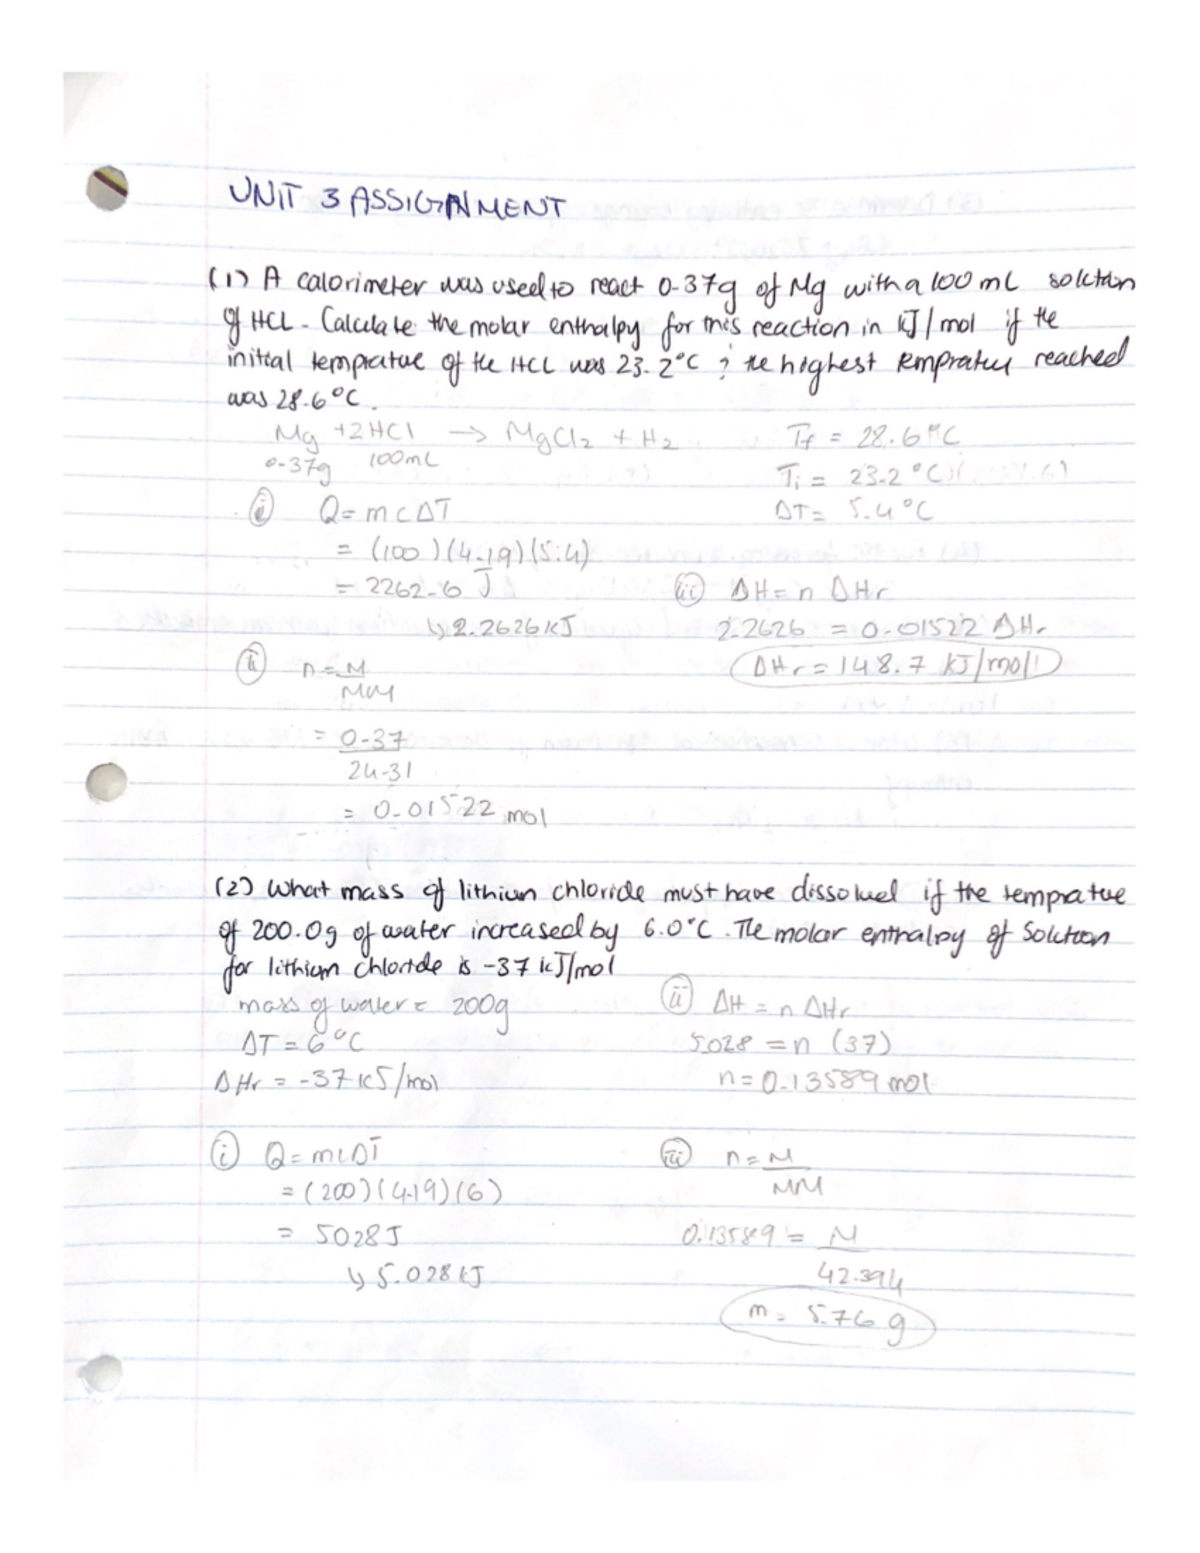 UNIT 3 ASSIGNMENT
(1) A calorimeter was used to react 0.37g of Mg with a 100 mL solction
of HCL. Calculate the molar enthalpy for this reaction in kJ/mol if the
initial tempratue of the HCL was 23.2°C ; the highest tempratuy reached
was 28.6°C.
Mg + 2HCl → MgCl2 + H2
0.37g 100mL
Tf = 28.6°C
Ti = 23.2°C
ΔT = 5.4°C
(i) Q = mcΔT
= (100)(4.19)(5.4)
= 2262.6 J
↳ 2.2626 kJ
(ii) n = M
MM
= 0.37
24.31
= 0.01522 mol
(iii) ΔH = n ΔHr
2.2626 = 0.01522 ΔHr
ΔHr = 148.7 kJ/mol
(2) What mass of lithium chloride must have dissolved if the tempratue
of 200.0g of water increased by 6.0°C. The molar enthalpy of Solction
for lithium chloride is -37 kJ/mol
mass of water = 200g
ΔT = 6°C
ΔHr = -37 kJ/mol
(i) Q = mcΔT
= (200)(4.19)(6)
= 5028 J
↳ 5.028 kJ
(ii) ΔH = n ΔHr
5.028 = n (37)
n = 0.13589 mol
(iii) n = M
MM
0.13589 = M
42.394
m = 5.76 g